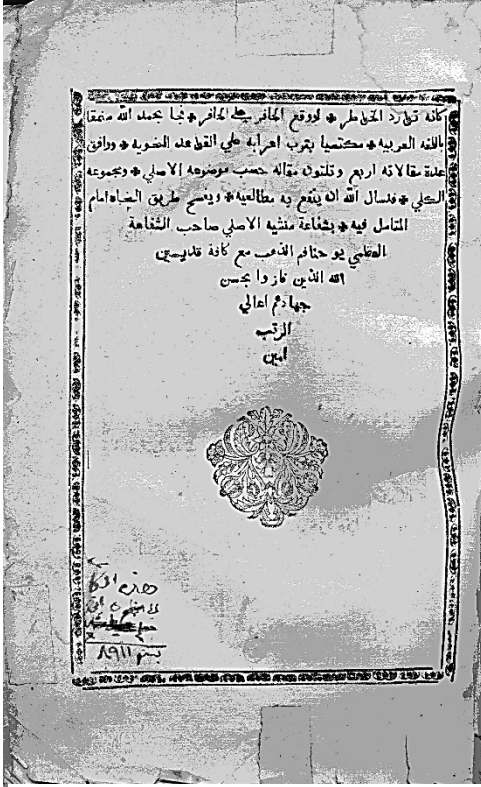 كانه توارد الخواطر * لووقع الحافر على الحافر * فجا بحمد الله متمقا
باللغه العربية * مكتسيا بثوب اعرابه علي القواعد النحوية * ووافق
عدة مقالاته اربع وثلثون مقاله حسب موضوعه الاصلي * ومجموعه
الكلي * فنسال الله ان ينفع به مطالعيه * ويفتح طريق الحياه امام
المتامل فيه * بشفاعة منشيه الاصلي صاحب الشفاعة
العظمي يوحنافم الذهب مع كافة قديسين
الله الذين فازوا بحسن
جهادهم اعالي
الرتب
امين
هذه